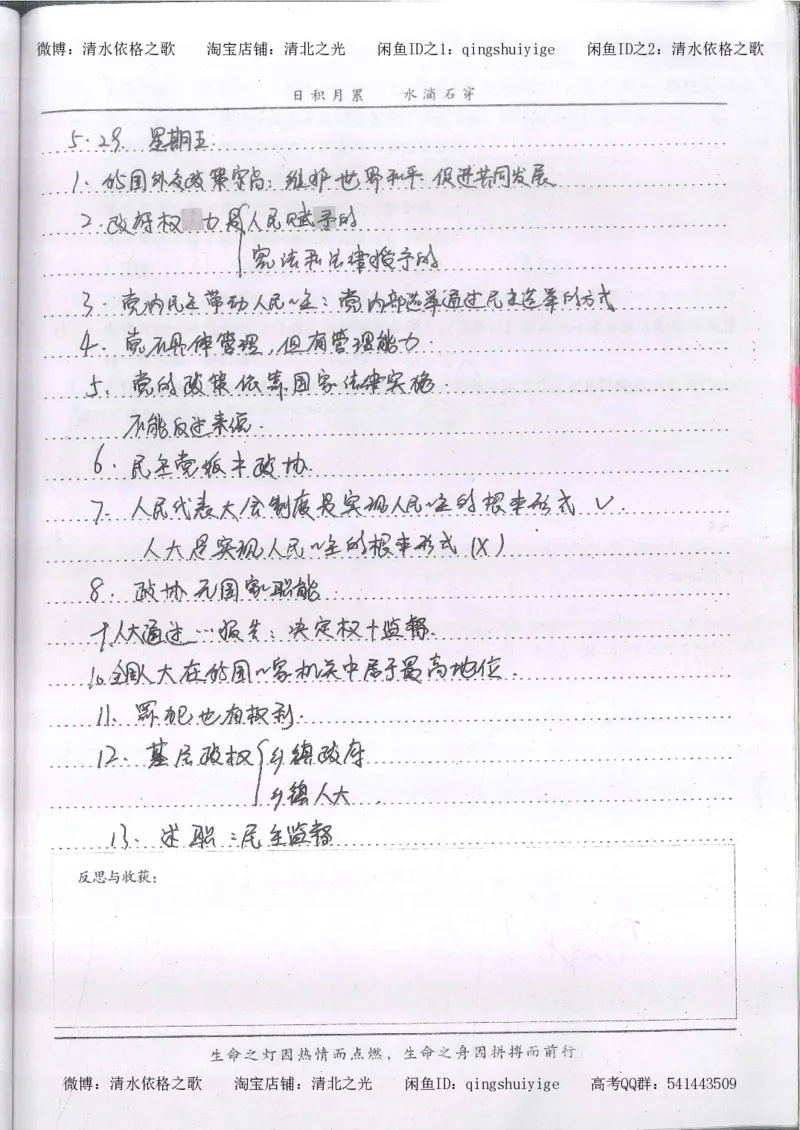 微博：清水依格之歌 淘宝店铺：清北之光 闲鱼ID之1：qingshuiyige 闲鱼ID之2：清水依格之歌
日积月累 水滴石穿
5.29 星期五
1. 的国外交政策宗旨：维护世界和平 促进共同发展
2. 政府权力是{人民赋予的
宪法和法律授予的
3. 党内民主带动人民~主：党内部选举通过民主选举的方式
4. 党不具体管理，但有管理能力.
5. 党的政策依靠国家法律实施.
不能反过来说.
6. 民主党派≠政协.
7. 人民代表大会制度是实现人民~主的根本形式 ✓.
人大是实现人民~主的根本形式 (X)
8. 政协无国家职能
9.人大通过…报告：决定权+监督.
10.全国人大在的国~家机关中属于最高地位.
11. 罪犯也有权利.
12. 基层政权{乡镇政府
乡镇人大.
13. 述职：民主监督
反思与收获：
生命之灯因热情而点燃，生命之舟因拼搏而前行
微博：清水依格之歌 淘宝店铺：清北之光 闲鱼ID：qingshuiyige 高考QQ群：541443509